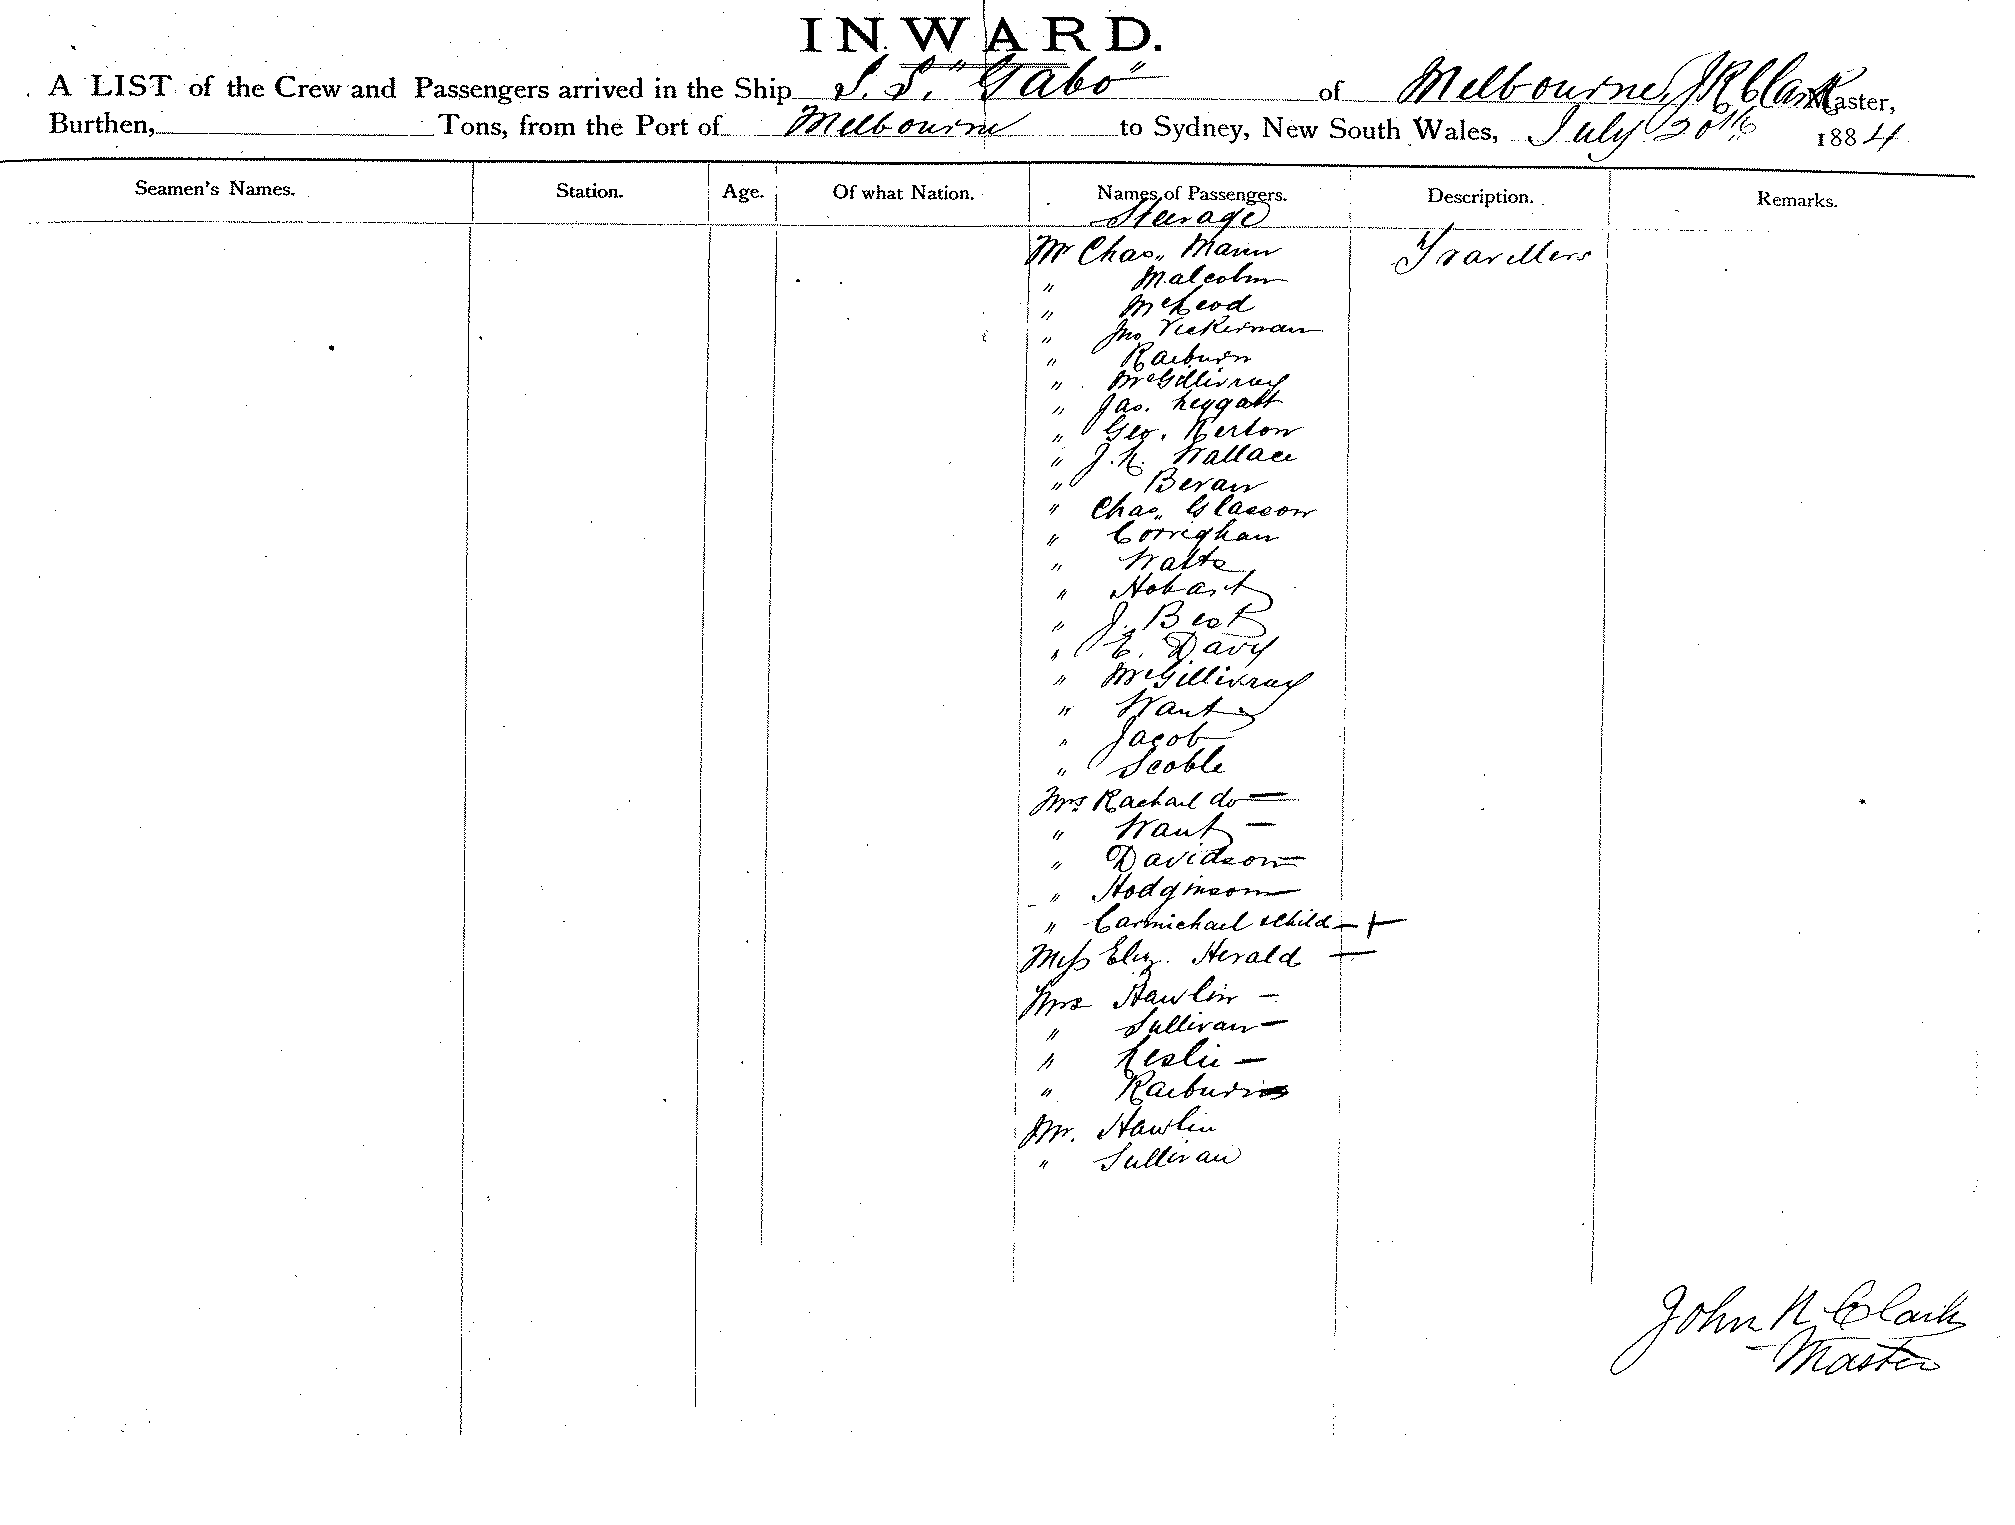 INWARD.
A LIST of the Crew and Passengers arrived in the Ship S. S. "Gabo" of Melbourne, J R Clark Master,
Burthen, Tons, from the Port of Melbourne to Sydney, New South Wales, July 20th 1884
Seamen's Names. Station. Age. Of what Nation. Names of Passengers. Description. Remarks.
Steerage
Mr Chas. Mann Travellers
" Malcolm
" McLeod
" Jno Vickerman
" Raeburn
" McGillivray
" Jas. Leggatt
" Geo. Kerton
" J. K. Wallace
" Bevan
" Chas. Glasson
" Corrighan
" Watts
" Hobart
" J. Best
" E. Davy
" McGillivray
" Want
" Jacob
" Scoble
Mrs Rachael do —
" Want —
" Davidson —
" Hodginson —
" Carmichael & Child — +
Miss Eliz. Herald —
Mrs Hawlin —
" Sullivan —
" Leslie —
" Raeburn
Mr. Hawlin
" Sullivan
John R Clark
Master